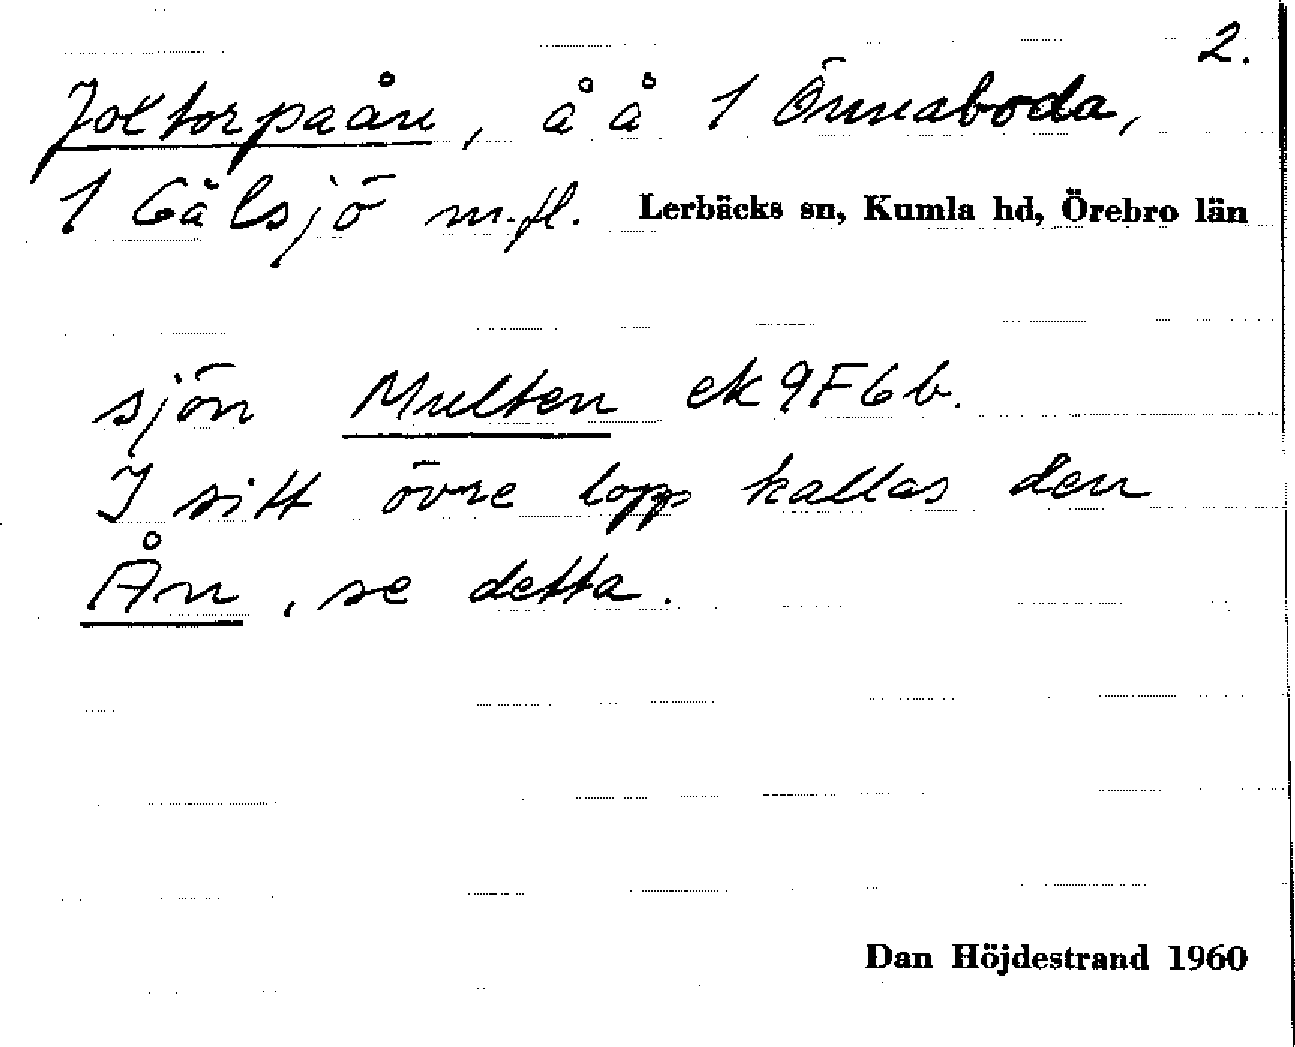 2.
Joltorpaån, å å 1 Önnaboda,
1 Gälsjö m.fl. Lerbäcks sn, Kumla hd, Örebro län
sjön Multen ek 9F6b.
I sitt övre lopp kallas den
Ån, se detta.
Dan Höjdestrand 1960